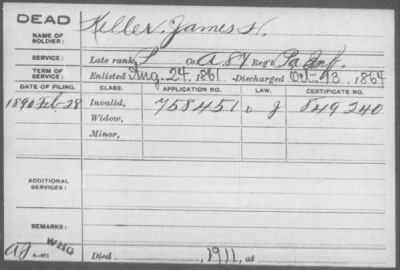 DEAD
NAME OF SOLDIER: Keller, James H.
SERVICE: Late rank P Co. A. 84 Reg't Pa Inf.
TERM OF SERVICE: Enlisted Aug. 24, 1861 Discharged Oct. 13, 1864
DATE OF FILING. CLASS. APPLICATION NO. LAW. CERTIFICATE NO.
1890 Feb-28 Invalid, 758451 849240
Widow,
Minor,
ADDITIONAL SERVICES:
REMARKS:
WHG
Died 1911, at